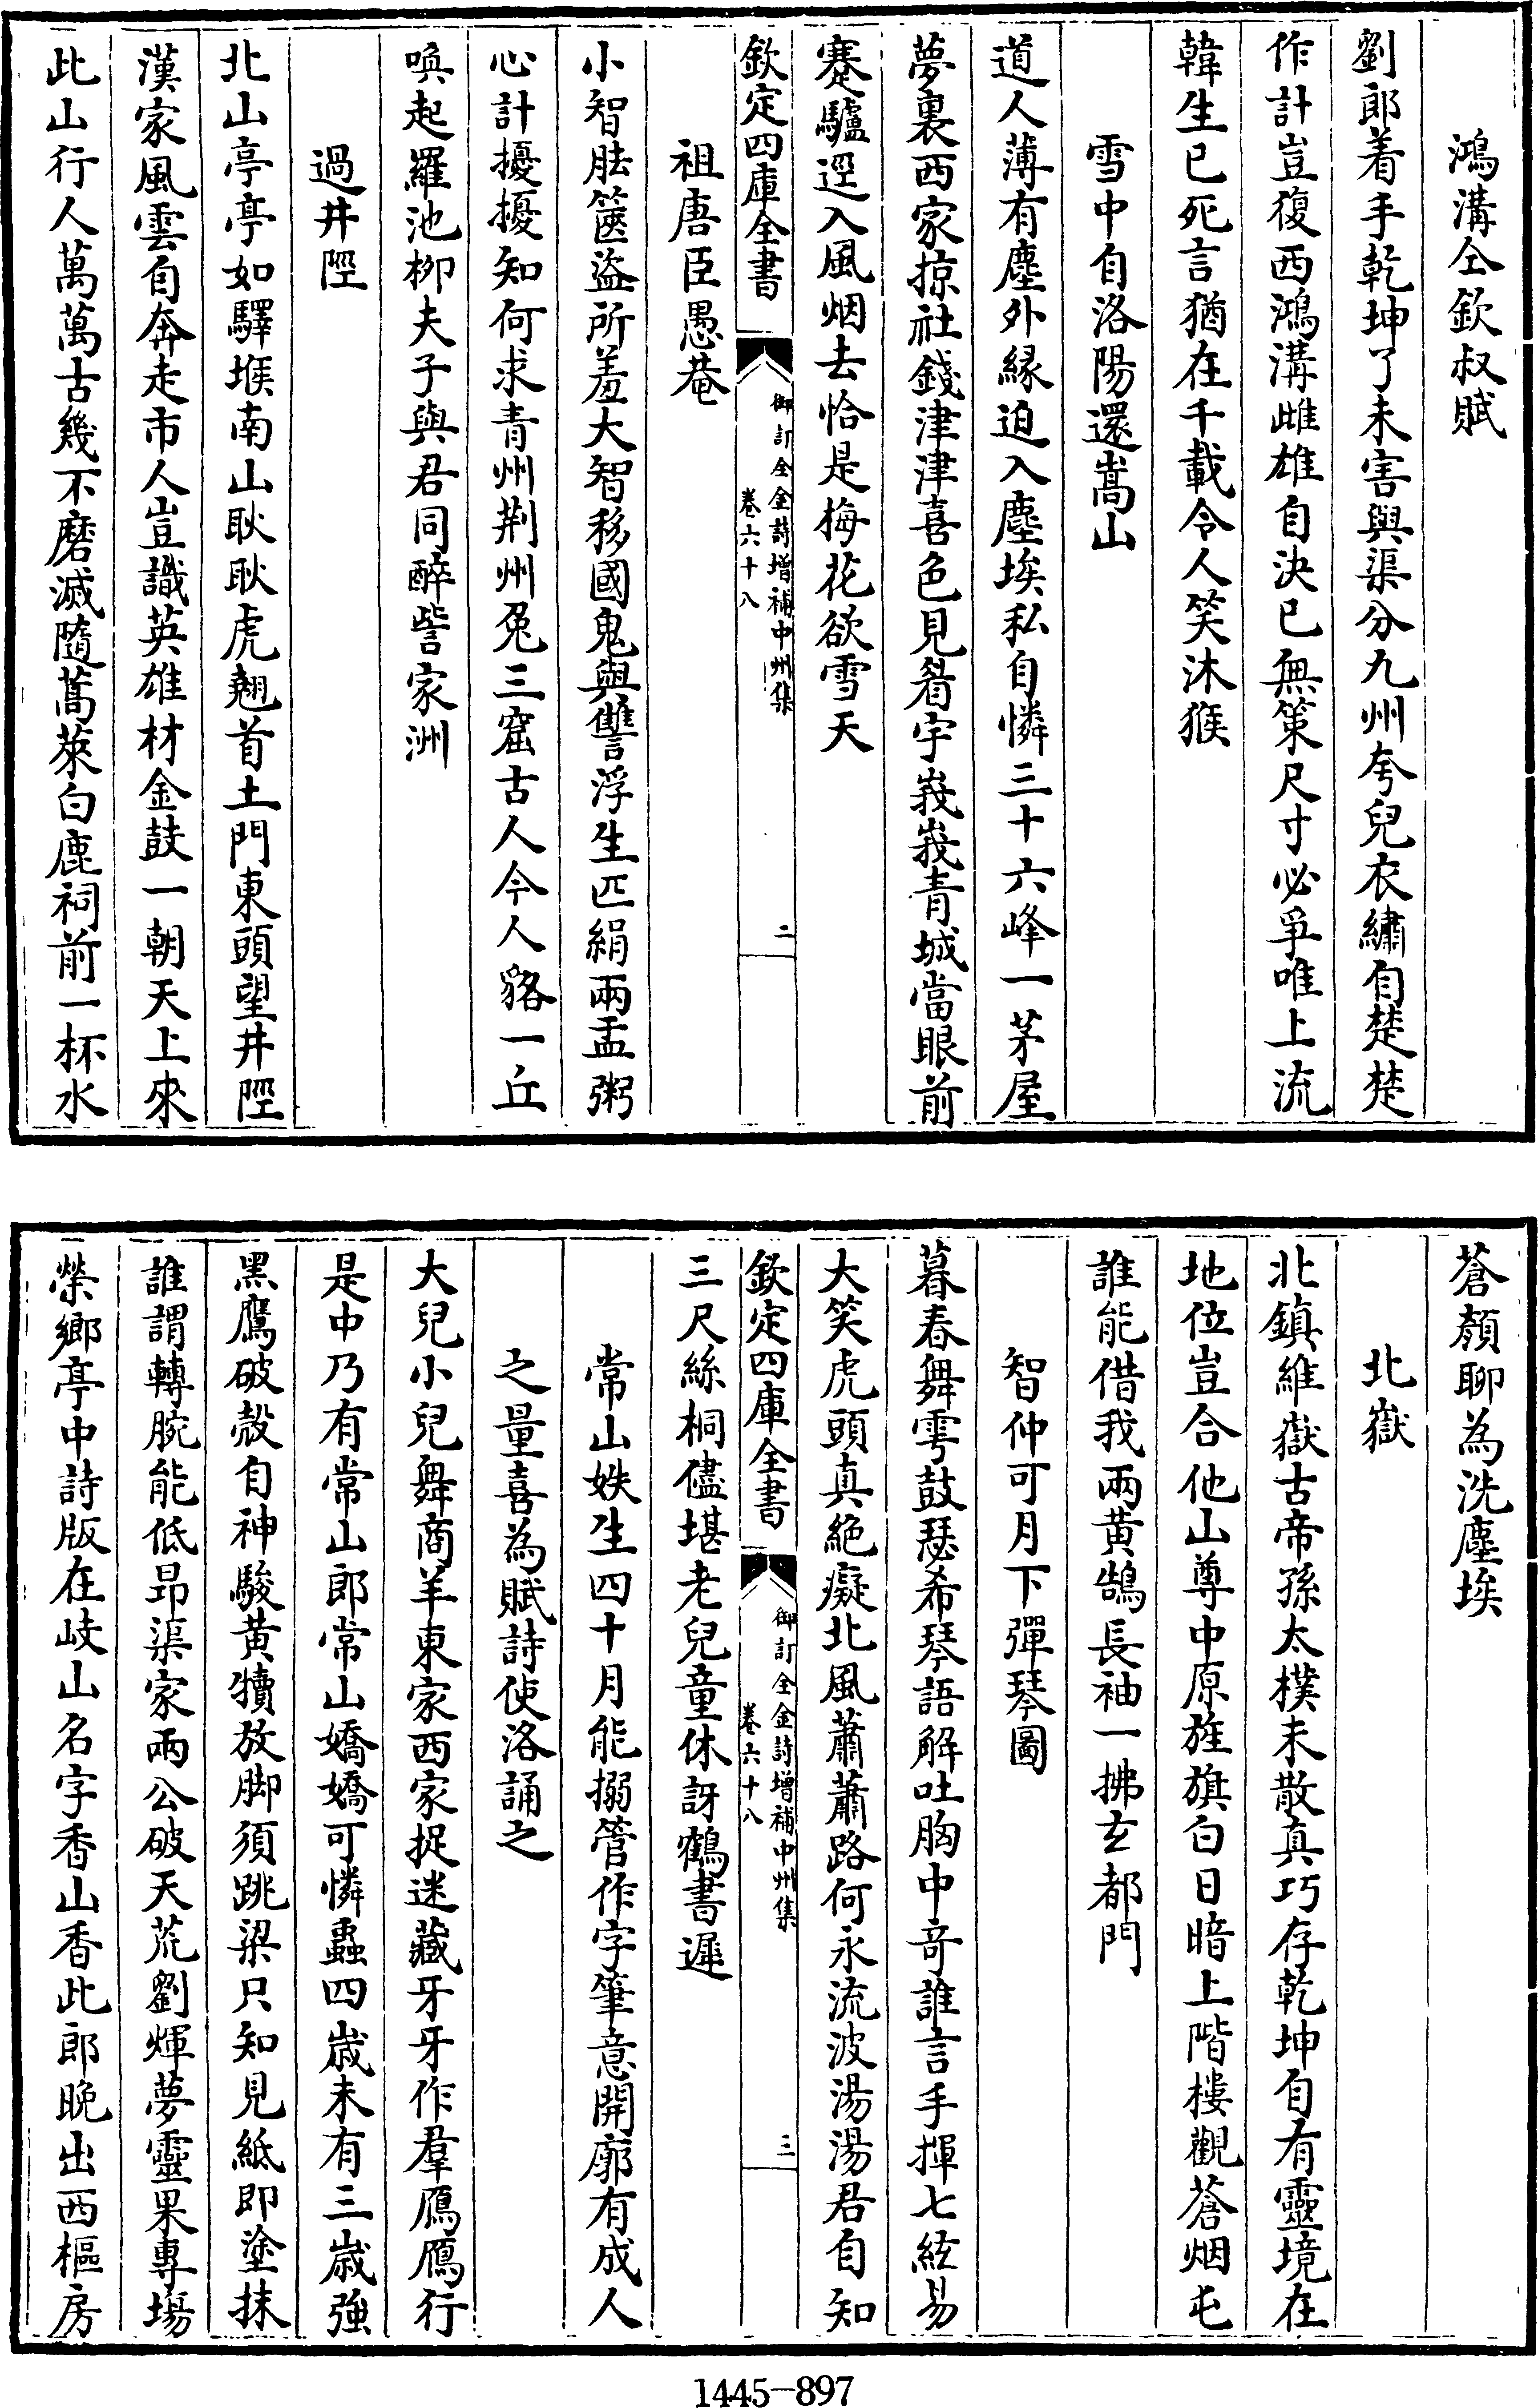 鴻溝仝欽叔賦
劉郎着手乾坤了未害與渠分九州夸兒衣繡自楚楚
作計豈復西鴻溝雌雄自決已無策尺寸必爭唯上流
韓生已死言猶在千載令人笑沐猴
雪中自洛陽還嵩山
道人薄有塵外緣迫入塵埃私自憐三十六峰一茅屋
夢裏西家掠社錢津津喜色見眉宇峩峩青城當眼前
蹇驢逕入風烟去恰是梅花欲雪天
欽定四庫全書
御訂全金詩増補中州集
卷六十八
二
祖唐臣愚菴
小智胠篋盜所羞大智移國鬼與讐浮生匹絹兩盂粥
心計擾擾知何求青州荆州兔三窟古人今人貉一丘
喚起羅池栁夫子與君同醉訾家洲
過井陘
北山亭亭如驛堠南山耿耿虎翹首土門東頭望井陘
漢家風雲自奔走市人豈識英雄材金鼓一朝天上來
此山行人萬萬古幾不磨滅隨蒿萊白鹿祠前一杯水
蒼顔聊為洗塵埃
北嶽
北鎮維嶽古帝孫太樸未散真巧存乾坤自有靈境在
地位豈合他山尊中原旌旗白日暗上階樓觀蒼烟屯
誰能借我兩黄鵠長袖一拂玄都門
智仲可月下彈琴圖
暮春舞雩鼓瑟希琴語解吐胸中奇誰言手揮七絃易
大笑虎頭真絶癡北風蕭蕭路何永流波湯湯君自知
欽定四庫全書
御訂全金詩増補中州集
卷六十八
三
三尺絲桐儘堪老兒童休訝鶴書遲
常山姪生四十月能搦管作字筆意開廓有成人
之量喜為賦詩使洛誦之
大兒小兒舞商羊東家西家捉迷藏牙牙作羣鴈鴈行
是中乃有常山郎常山嬌嬌可憐蟲四歲未有三歲強
黑鷹破殼自神駿黄犢放脚須跳梁只知見紙即塗抹
誰謂轉腕能低昻渠家兩公破天荒劉煇夢靈果專場
榮鄉亭中詩版在岐山名字香山香此郎晚出西樞房
1445-897